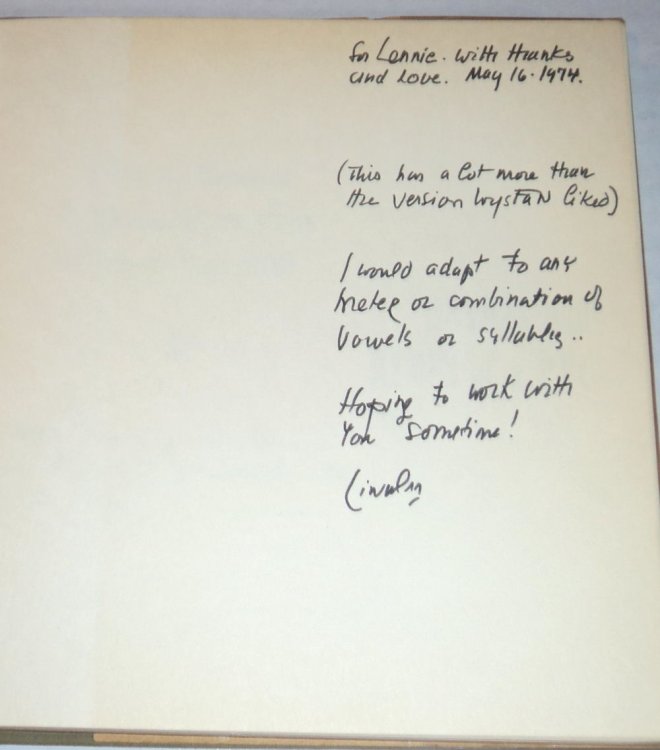 for Lennie. With thanks
and love. May 16. 1974.
(This has a lot more than
the version Wystan liked)
I would adapt to any
meter or combination of
vowels or syllables..
Hoping to work with
you sometime!
Lincoln